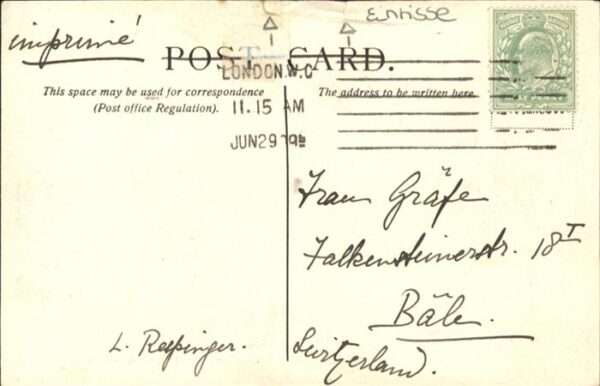 imprimé
POST CARD.
LONDON. W.C
11.15 AM
JUN 29
This space may be used for correspondence
(Post office Regulation).
The address to be written here.
Frau Gräfe
Falkensteinerstr. 18 I
Bâle.
Switzerland.
L. Respinger.